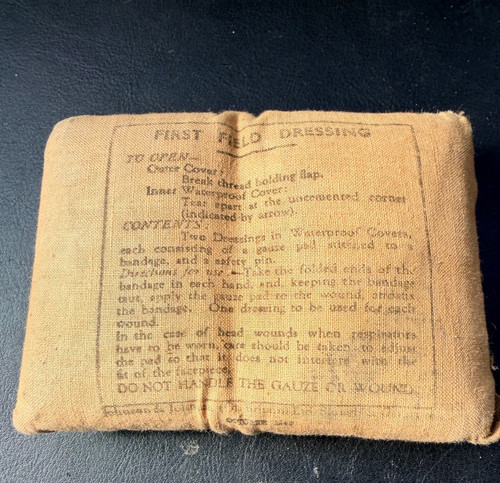 FIRST FIELD DRESSING
TO OPEN—
Outer Cover:
Break thread holding flap.
Inner Waterproof Cover:
Tear apart at the uncemented corner
(indicated by arrow).
CONTENTS:
Two Dressings in Waterproof Covers,
each consisting of a gauze pad stitched to a
bandage, and a safety pin.
Directions for use.—Take the folded ends of the
bandage in each hand, and, keeping the bandage
taut, apply the gauze pad to the wound,
the bandage. One dressing to be used for each
wound.
In the case of head wounds when respirators
have to be worn, care should be taken to adjust
the pad so that it does not interfere with the
fit of the facepiece.
DO NOT HANDLE THE GAUZE OR WOUND.
Johnson & Johnson
OCTOBER